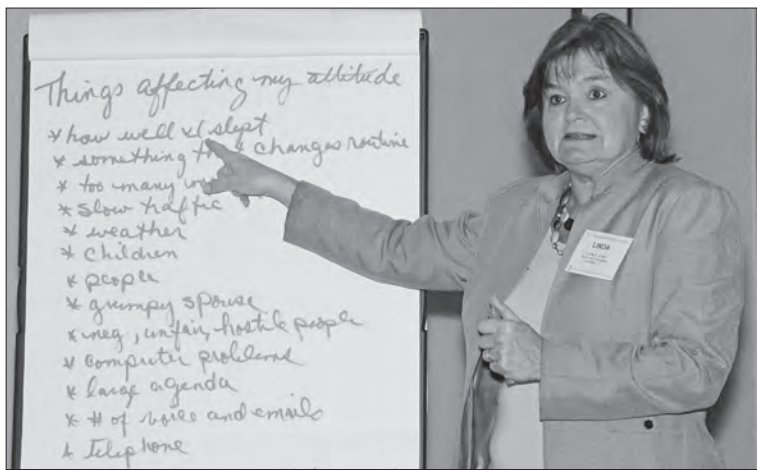 Things affecting my attitude
* how well I slept
* something changes routine
* too many
* slow traffic
* weather
* children
* people
* grumpy spouse
* neg, unfair, hostile people
* computer problems
* large agenda
* # of voice and emails
* telephone
LINDA